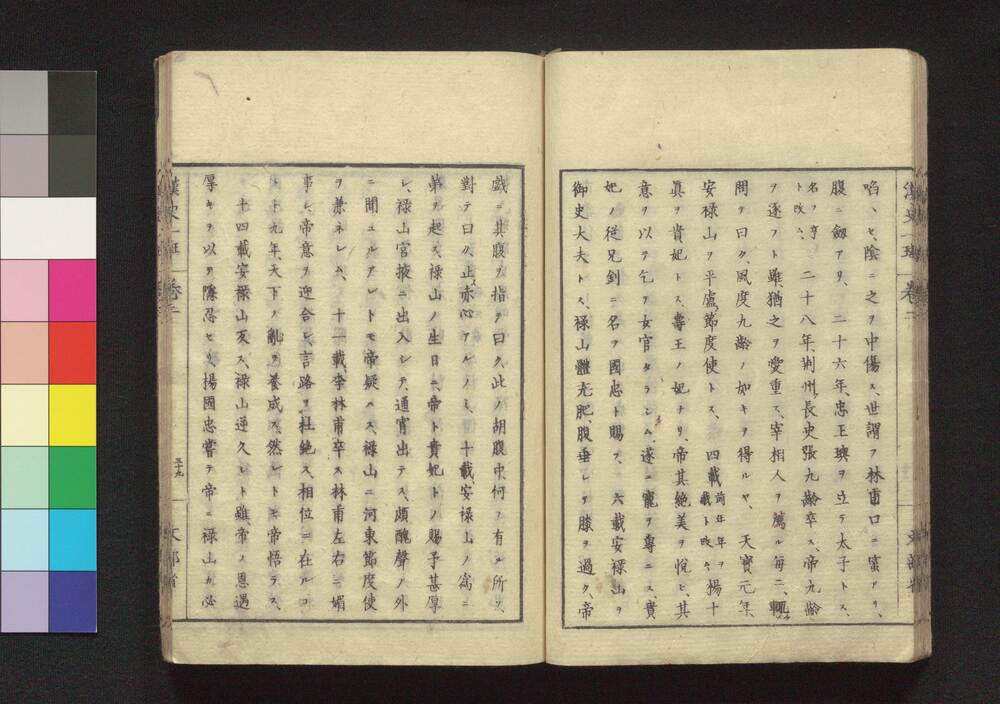 陷、ヒ、陰ニ之ヲ中傷ス、世謂フ林甫口ニ蜜アリ、
腹ニ劔アリ、二十六年、忠王璵ヲ立テ太子トス、
名ヲ亨ト改ム、二十八年、荆州長史張九齡卒ス、帝九齡
ヲ逐フト雖、猶之ヲ愛重ス、宰相人ヲ薦ル毎ニ、輙
問テ曰ク、風度九齡ノ如キヲ得ルヤ、天寶元年、
安禄山ヲ平盧節度使トス、四載前年年ヲ載ト改ム楊十
眞ヲ貴妃トス、壽王ノ妃ナリ、帝其絶美ヲ悅ヒ、其
意ヲ以テ乞テ女官タラシム、遂ニ寵ヲ專ニス、貴
妃ノ從兄釗ニ名ヲ國忠ト賜フ、六載安禄山ヲ
御史大夫トス、禄山體充肥、腹垂レテ膝ヲ過ク、帝
漢史一班 卷二
文部省
戯ニ其腹ヲ指テ曰ク、此ノ胡腹中、何ノ有ル所ソ、
對テ曰ク、止赤心アルノミ、十載安禄山ノ爲ニ
第ヲ起ス、禄山ノ生日ニ、帝ト貴妃トノ賜予甚厚
シ、禄山宮掖ニ出入シテ、通宵出テス、頗醜聲ノ外
ニ聞ユルアレトモ帝疑ハス、禄山ニ河東節度使
ヲ兼ネシム、十一載、李林甫卒ス、林甫左右ニ媚
事シ、帝意ヲ迎合シ、言路ヲ杜絶ス、相位ニ在ルコ
ト十九年、天下ノ亂ヲ養成ス、然レトモ帝悟ラス、
十四載安禄山反ス、禄山逆久シト雖、帝ノ恩遇
厚キヲ以テ隱忍セリ、楊國忠嘗テ帝ニ禄山カ必
漢史一班 卷二
三十九
文部省